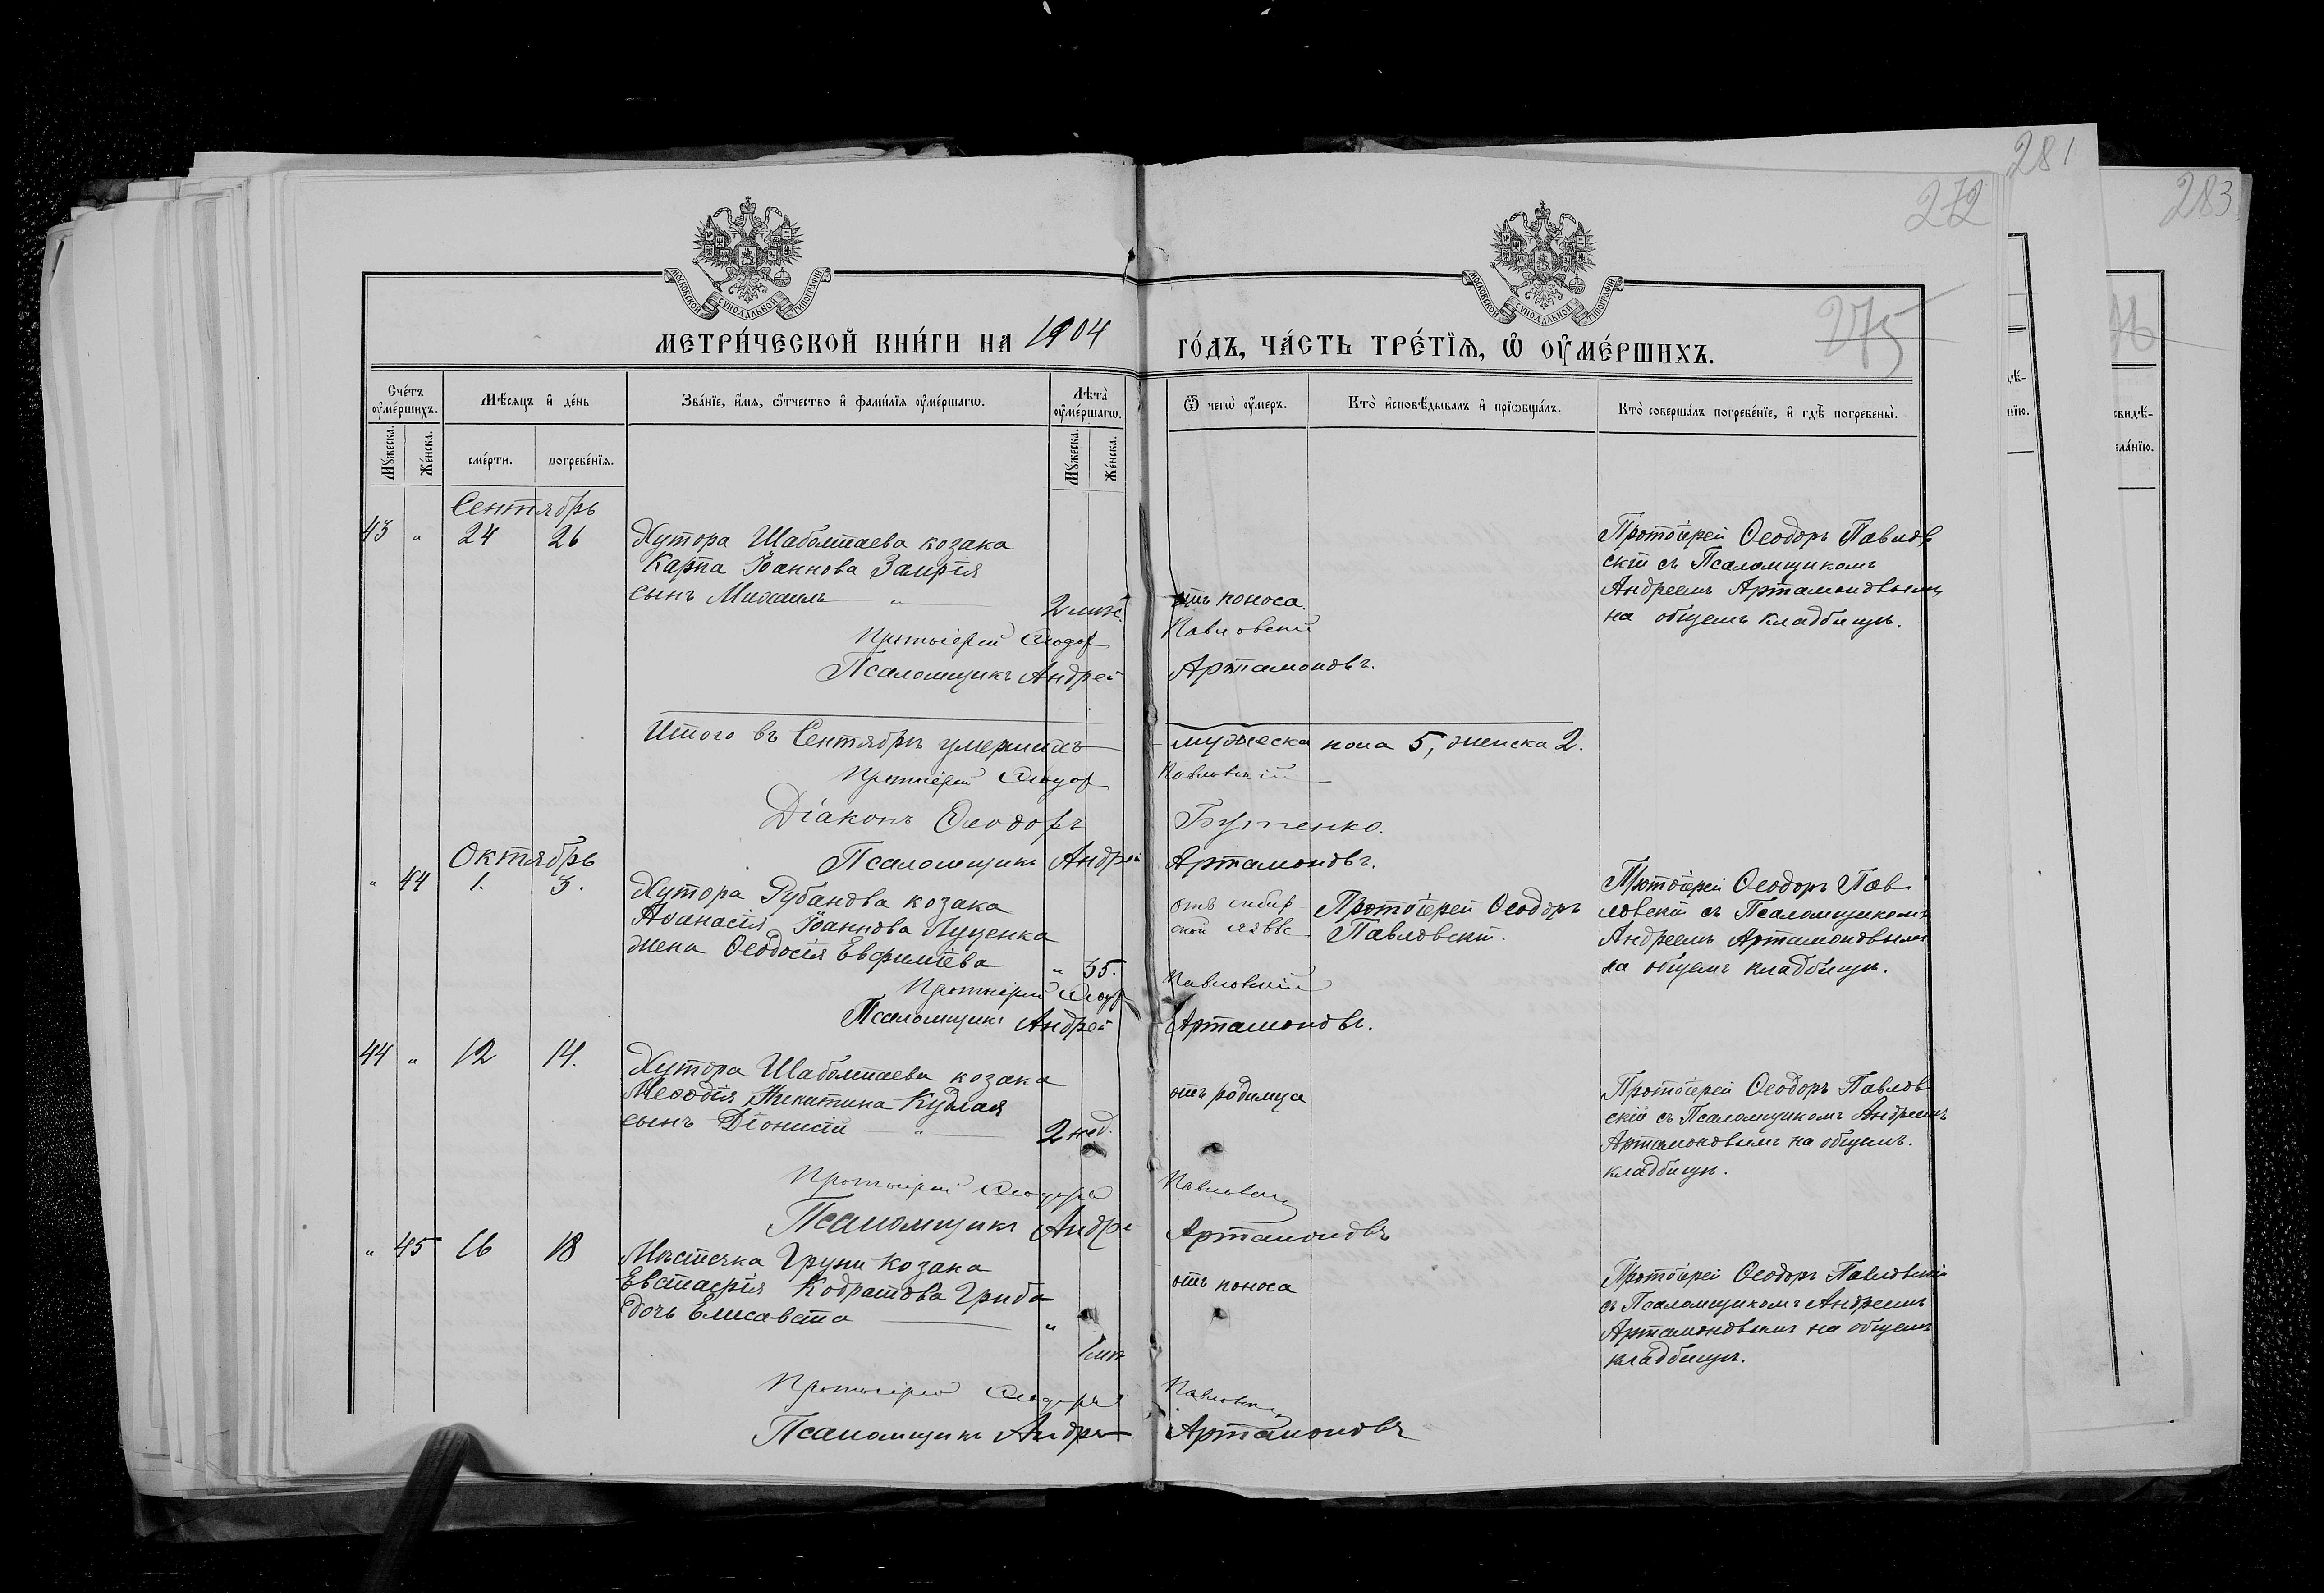 281
283
272
275
МОСКОВСКОЙ СѴНОДАЛЬНОЙ ТИПОГРАФІИ
МОСКОВСКОЙ СѴНОДАЛЬНОЙ ТИПОГРАФІИ
МЕТРИ́ЧЕСКОЙ КНИ́ГИ НА 1904
ГО́ДЪ, ЧА́СТЬ ТРЕ́ТЇѦ, Ѡ҆ ОУ҆МЕ́РШИХЪ.
Сче́тъ оу҆ме́ршихъ.
Мѣ́сяцъ и҆ де́нь
Зва́нїе, и҆́мя, ѻ҆́тчество и҆ фами́лїя оу҆ме́ршагѡ.
Лѣ̑та оу҆ме́ршагѡ.
Ѿ чегѡ̀ оу҆́меръ.
Кто̀ и҆сповѣ́дывалъ и҆ прїѡбща́лъ.
Кто̀ соверша́лъ погребе́нїе, и҆ гдѣ̀ погребены̀.
Мꙋ́жеска.
Же́нска.
сме́рти.
погребе́нїя.
Мꙋ́жеска.
Же́нска.
Сентябрь
43 " 24 26 Хутора Шаболтаева козака
Карпа Іоаннова Замрія
сынъ Михаилъ — " — 2 мѣс. отъ поноса.
Протоіерей Ѳеодоръ Павлов
скій съ Псаломщикомъ
Андреемъ Артамоновымъ
на общемъ кладбищѣ.
Протоіерей Ѳеодор Павловскій
Псаломщикъ Андрей Артамоновъ.
Итого въ Сентябрѣ умершихъ — мужеска пола 5, женска 2.
Протоіерей Ѳеодор Павловскій
Діаконъ Ѳеодоръ
Псаломщикъ Андрей Артамоновъ.
Октябрь
" 44 1. 3. Хутора Рубанова козака
Аѳанасія Іоаннова Луценка
жена Ѳеодосія Евфиміева " 35.
отъ сибир
ской язвы
Протоіерей Ѳеодоръ
Павловскій.
Протоіерей Ѳеодоръ Пав
ловскій съ Псаломщикомъ
Андреемъ Артамоновымъ
на общемъ кладбищѣ.
Протоіерей Ѳеодор Павловскій
Псаломщикъ Андрей Артамоновъ.
44 " 12 14. Хутора Шаболтаева козака
Меѳодія Никитина Кудлая
сынъ Діонисій — " — 2 нед.
отъ родимца
Протоіерей Ѳеодоръ Павлов
скій съ Псаломщикомъ Андреемъ
Артамоновымъ на общемъ
кладбищѣ.
Протоіерей Ѳеодоръ Павловскій
Псаломщикъ Андрей Артамоновъ
" 45 16 18 Мѣстечка Груни козака
Евстафія Кодратова Гриба
дочь Елисавета — "
1 мѣс
отъ поноса
Протоіерей Ѳеодоръ Павловскій
съ Псаломщикомъ Андреемъ
Артамоновымъ на общемъ
кладбищѣ.
Протоіерей Ѳеодоръ Павловскій
Псаломщикъ Андрей Артамоновъ